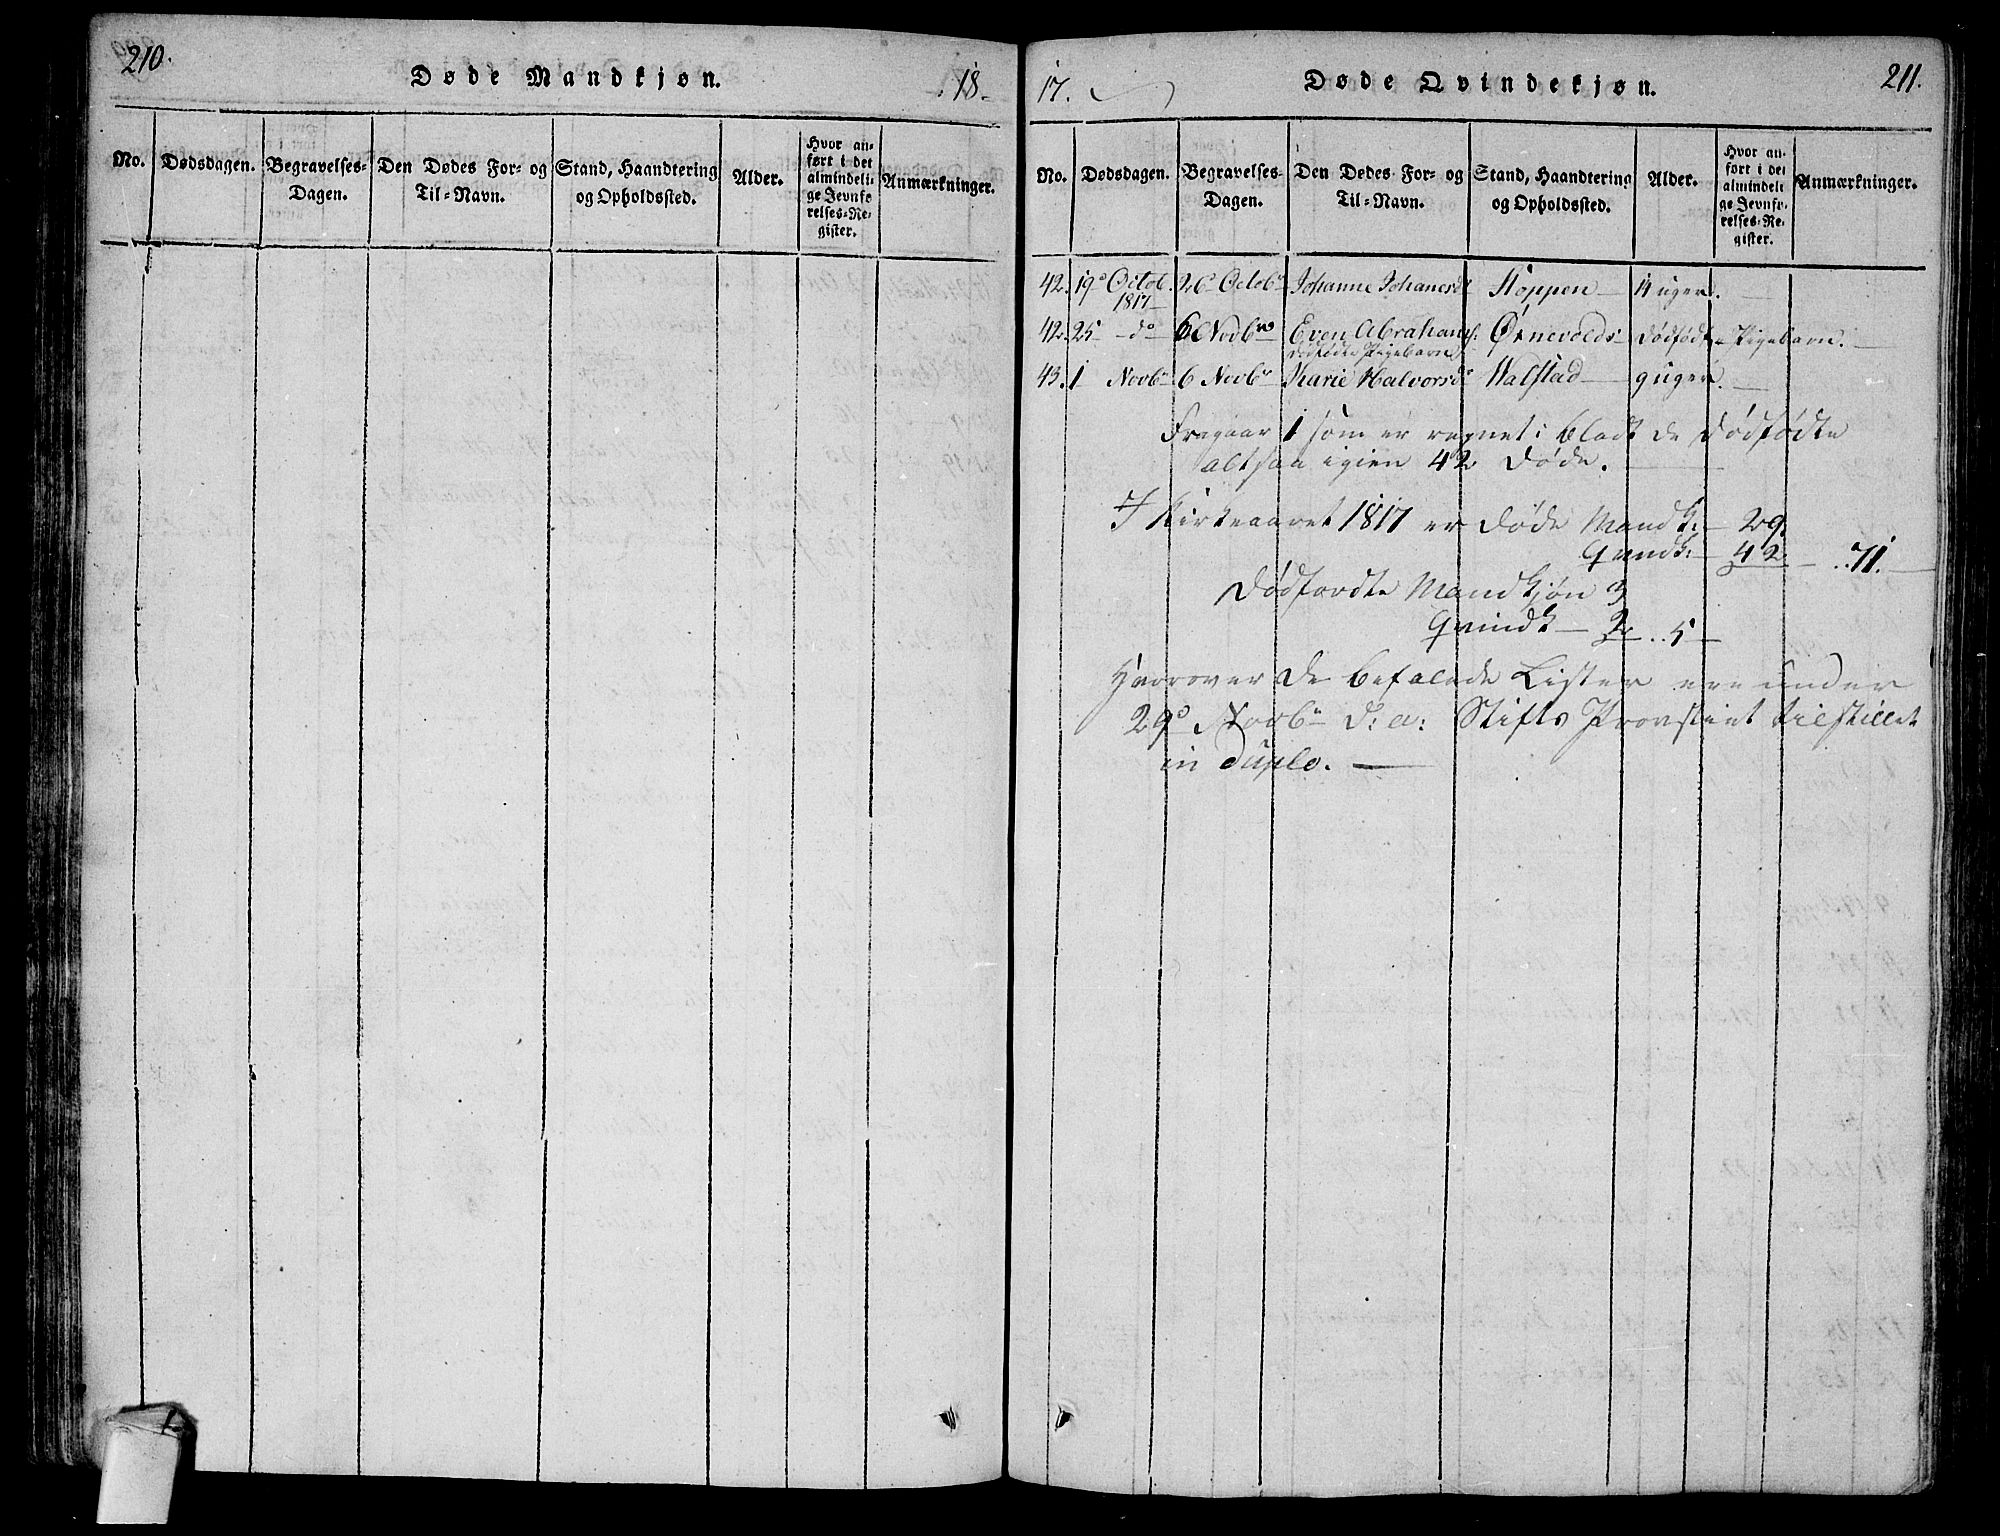 210.
Døde Mandkjøn.
18
No.
Dødsdagen.
Begravelses-
Dagen.
Den Dødes For- og
Til-Navn.
Stand, Haandtering
og Opholdssted.
Alder.
Hvor an-
ført i det
almindeli-
ge Jevnfø-
relses-Re-
gister.
Anmærkninger.
17.
Døde Qvindekjøn.
211.
No.
Dødsdagen.
Begravelses-
Dagen.
Den Dødes For- og
Til-Navn.
Stand, Haandtering
og Opholdssted.
Alder.
Hvor an-
ført i det
almindeli
ge Jevnfø-
relses-Re-
gister.
Anmærkninger.
42. 19 Octob. 26 Octob Johanne Johanesd Stoppen 14 uger.
1817
42. 25 do 6 Novb Even Abrahams Ørnevolds dødfødt Pigebarn.
dødfødte Pigebarn
43. 1 Novb 6 Novb Karie Halvorsd Walstad 9 uger.
Fragaar 1 som er regnet i bladt de Dødfødte
altsaa igien 42 Døde.
I Kirkeaaret 1817 er Døde Mandk: 29
Qvindk: 42 71.
Dødfødte Mandkjøn 3
Qvindk 2 5
Hvorover de befalede Lister ere under
29 Novb d: a: Stifts Provstiet tilstillet
in duplo.